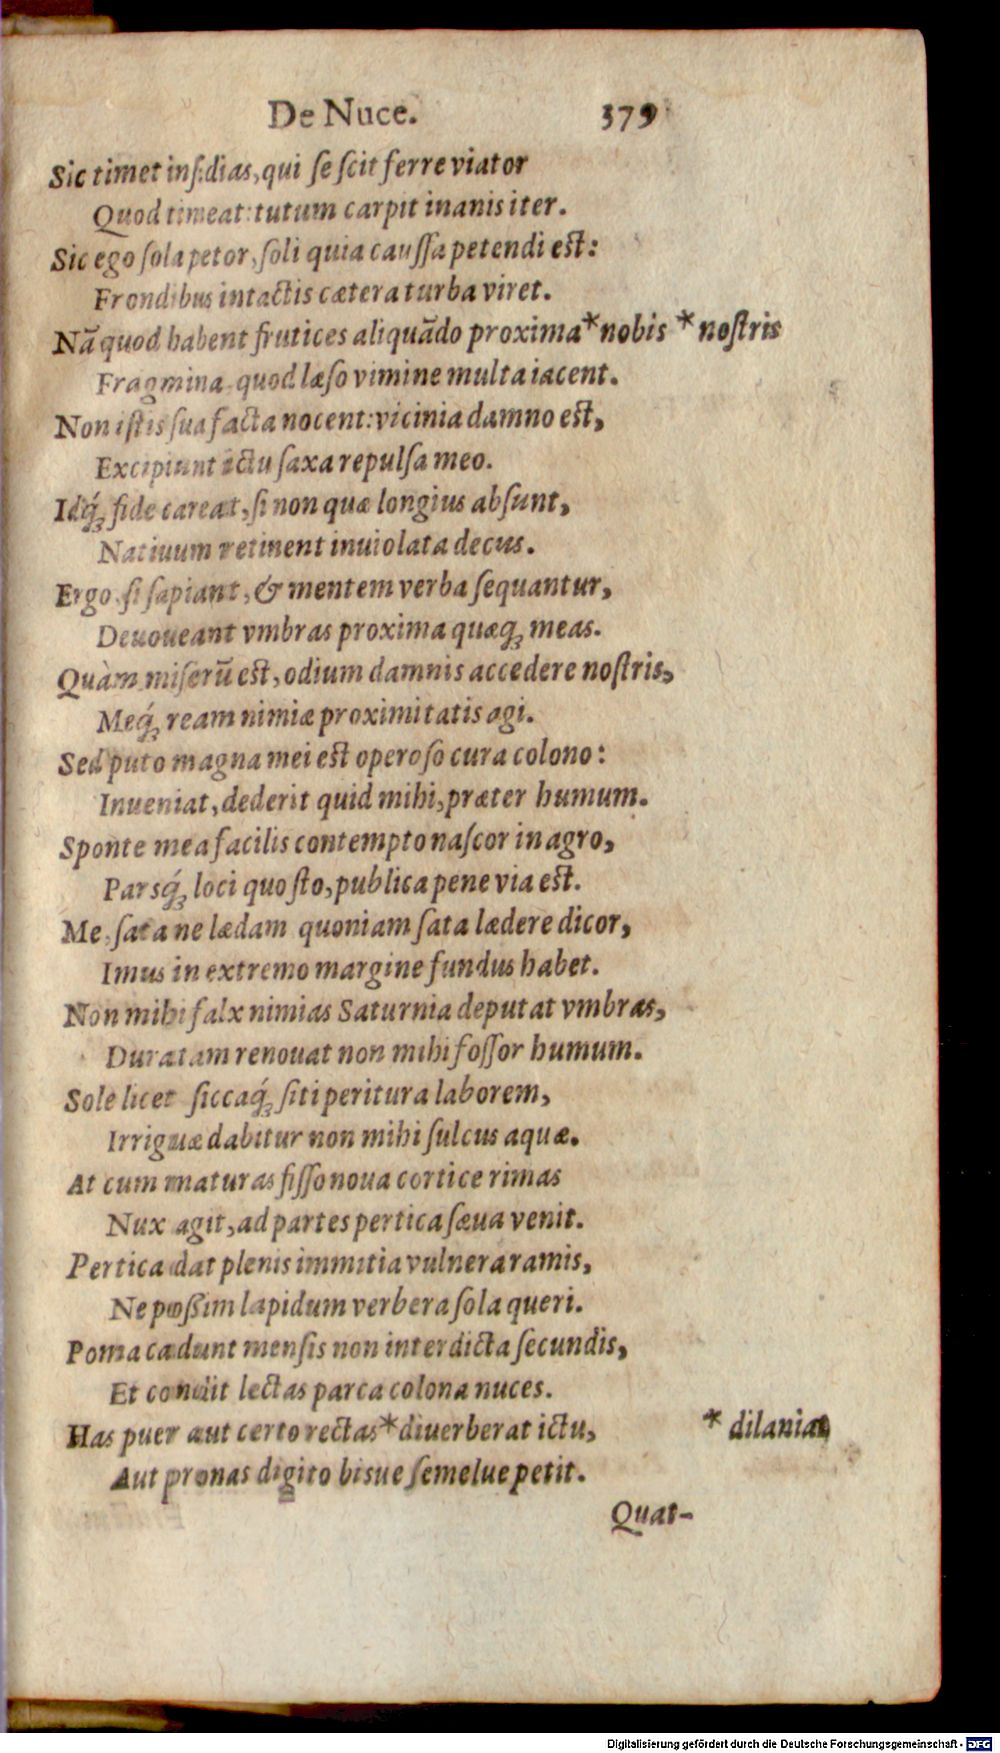 De Nuce. 379
Sic timet insidias, qui se scit ferre viator
Quod timeat: tutum carpit inanis iter.
Sic ego sola petor, soli quia caussa petendi est:
Frondibus intactis cætera turba viret.
Nā quod habent frutices aliquādo proxima*nobis *nostris
Fragmina quod læso vimine multa iacent.
Non istis sua facta nocent: vicinia damno est,
Excipiunt ictu saxa repulsa meo.
Idq́; fide careat, si non quæ longius absunt,
Natiuum retinent inuiolata decus.
Ergo si sapiant, & mentem verba sequantur,
Deuoueant vmbras proxima quæq; meas.
Quàm miserū est, odium damnis accedere nostris,
Meq́; ream nimiæ proximitatis agi.
Sed puto magna mei est operoso cura colono:
Inueniat, dederit quid mihi, præter humum.
Sponte mea facilis contempto nascor in agro,
Parsq́; loci quo sto, publica pene via est.
Me, sata ne lædam quoniam sata lædere dicor,
Imus in extremo margine fundus habet.
Non mihi falx nimias Saturnia deputat vmbras,
Duratam renouat non mihi fossor humum.
Sole licet siccaq́; siti peritura laborem,
Irriguæ dabitur non mihi sulcus aquæ.
At cum maturas fisso noua cortice rimas
Nux agit, ad partes pertica sæua venit.
Pertica dat plenis immitia vulnera ramis,
Ne possim lapidum verbera sola queri.
Poma cadunt mensis non interdicta secundis,
Et condit lectas parca colona nuces.
Has puer aut certo rectas*diuerberat ictu, * dilaniat
Aut pronas digito bisue semelue petit.
Quat-
Digitalisierung gefördert durch die Deutsche Forschungsgemeinschaft - DFG